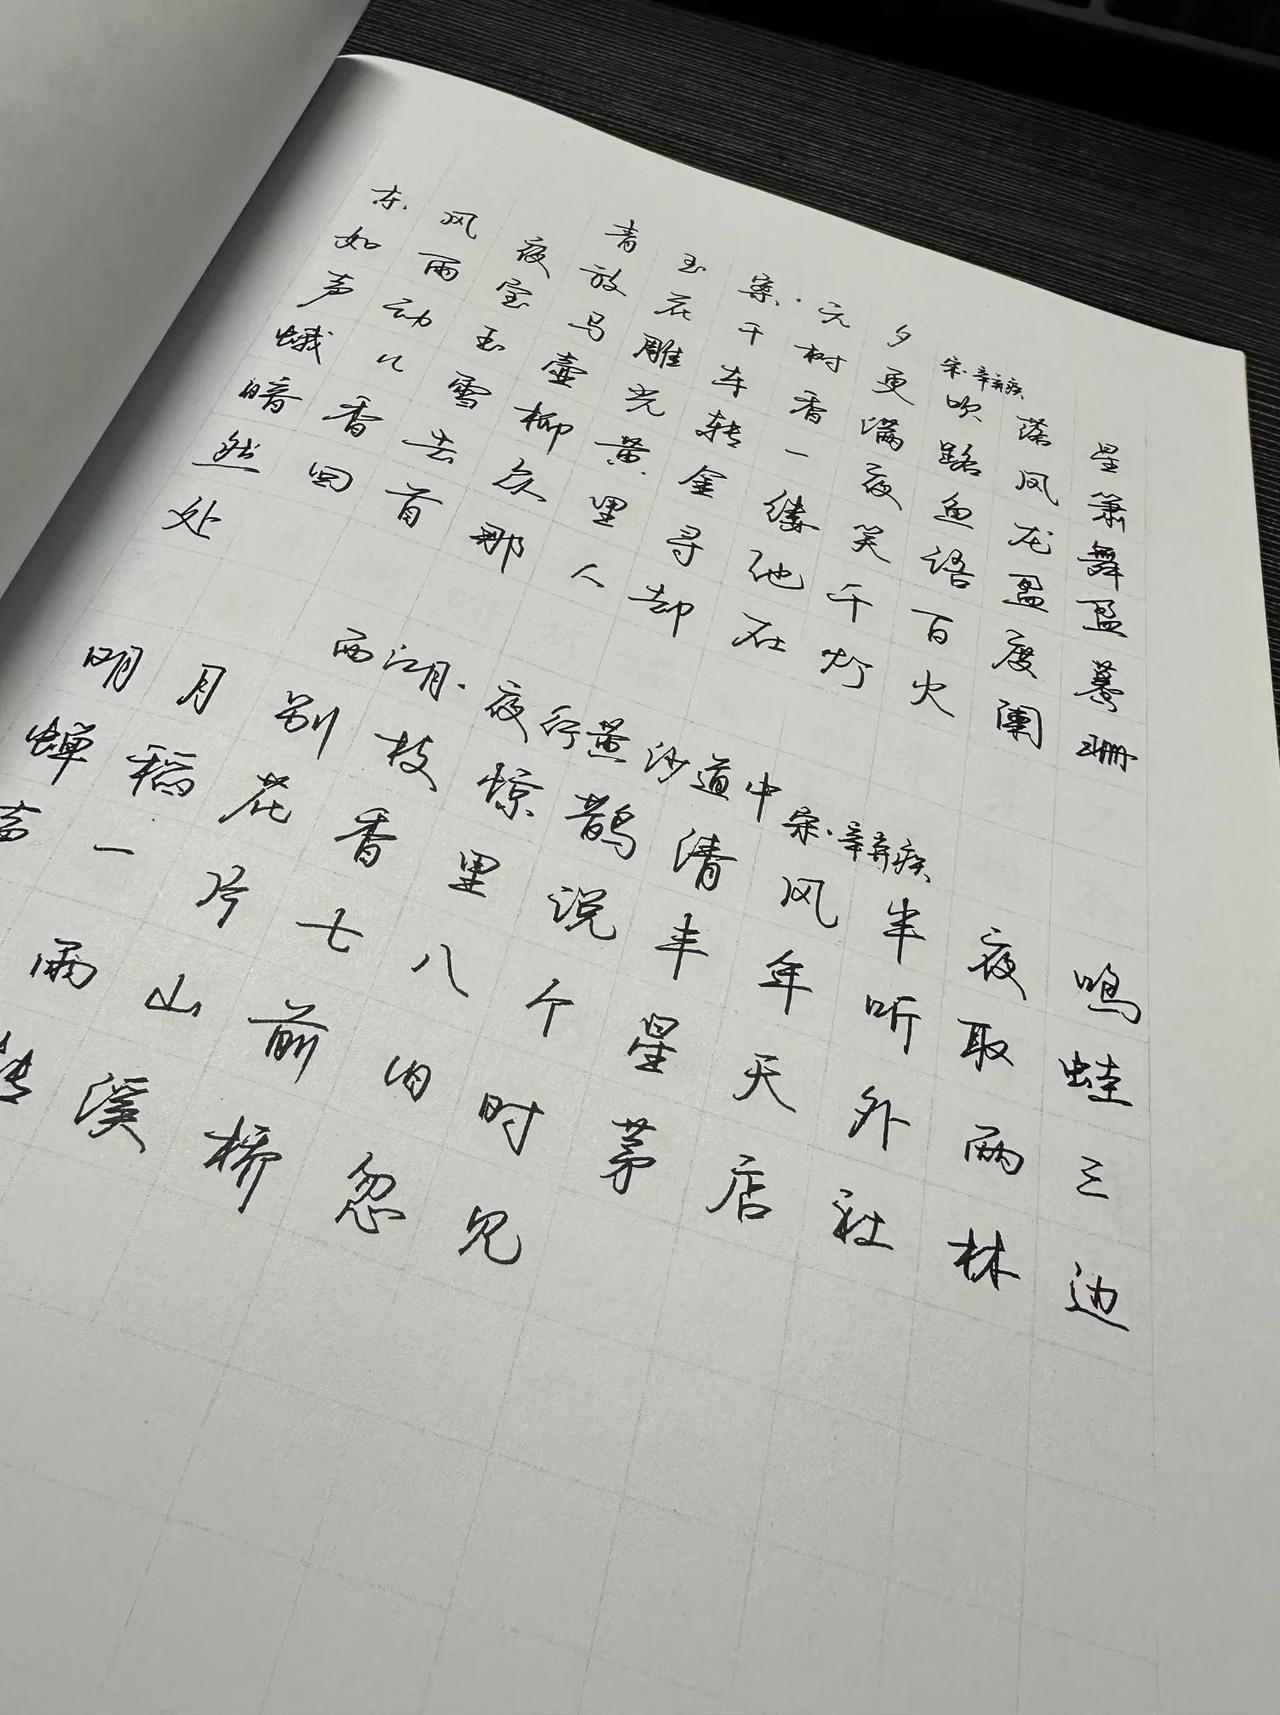 青玉案·元夕 宋·辛弃疾
东风夜放花千树更吹落星
如雨宝马雕车香满路凤箫
声动玉壶光转一夜鱼龙舞
蛾儿雪柳黄金缕笑语盈盈
暗香去众里寻他千百度蓦
然回首那人却在灯火阑珊
处
西江月·夜行黄沙道中 宋·辛弃疾
明月别枝惊鹊清风半夜鸣
蝉稻花香里说丰年听取蛙
声一片七八个星天外两三
雨山前旧时茅店社林边
转溪桥忽见